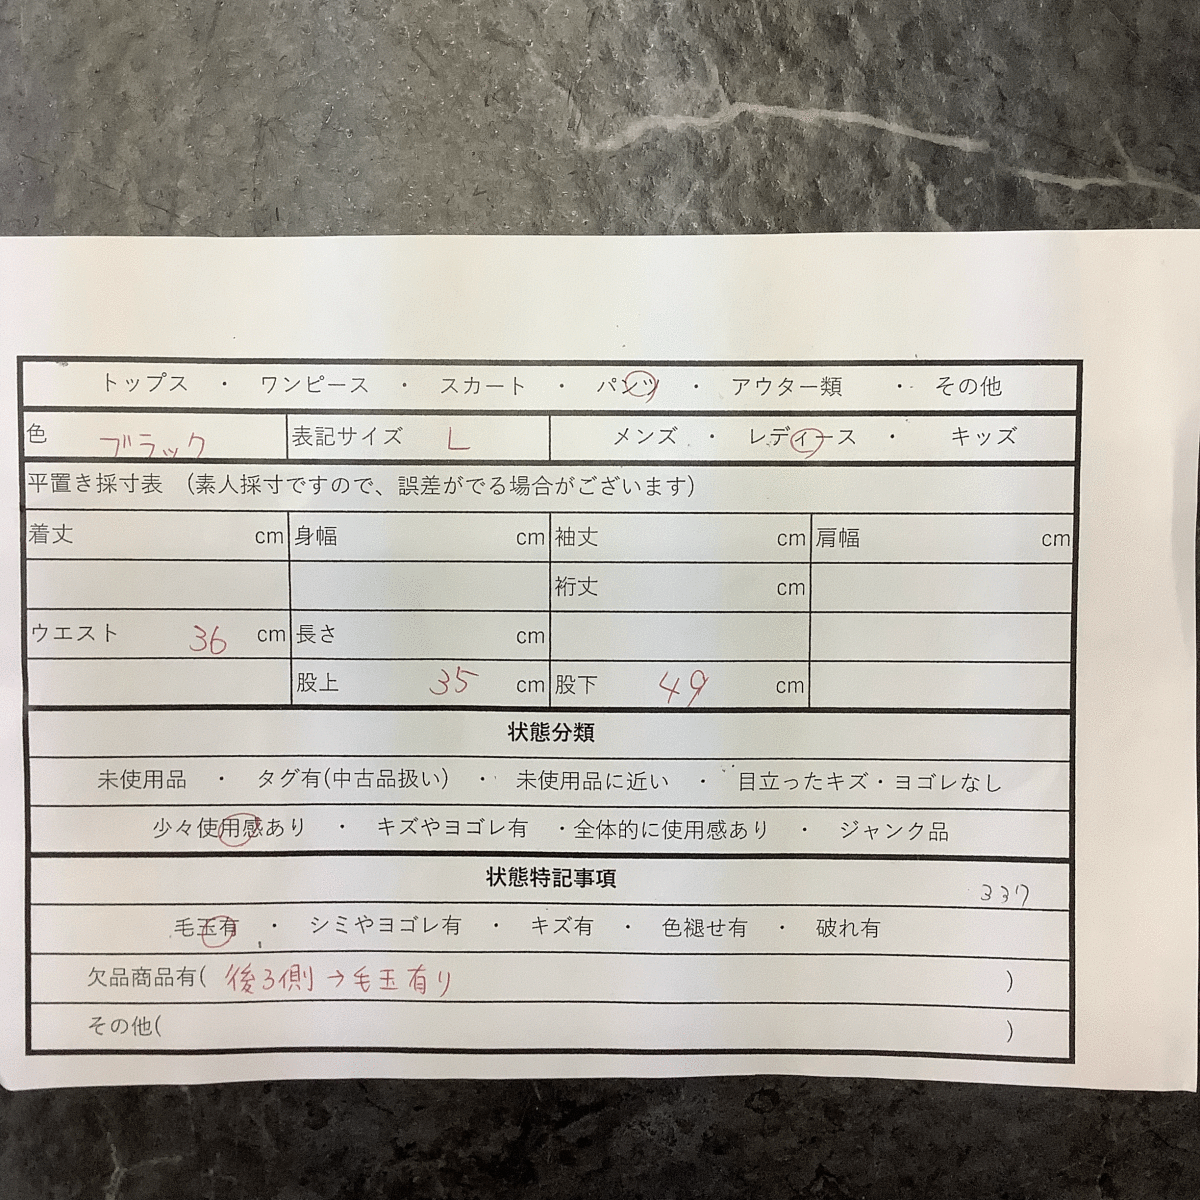 トップス ・ ワンピース ・ スカート ・ パンツ ・ アウター類 ・ その他
色 ブラック 表記サイズ L メンズ ・ レディース ・ キッズ
平置き採寸表 （素人採寸ですので、誤差がでる場合がございます）
着丈 cm 身幅 cm 袖丈 cm 肩幅 cm
裄丈 cm
ウエスト 36 cm 長さ cm
股上 35 cm 股下 49 cm
状態分類
未使用品 ・ タグ有(中古品扱い) ・ 未使用品に近い ・ 目立ったキズ・ヨゴレなし
少々使用感あり ・ キズやヨゴレ有 ・全体的に使用感あり ・ ジャンク品
状態特記事項
337
毛玉有 ・ シミやヨゴレ有 ・ キズ有 ・ 色褪せ有 ・ 破れ有
欠品商品有( 後ろ側→毛玉有り )
その他( )